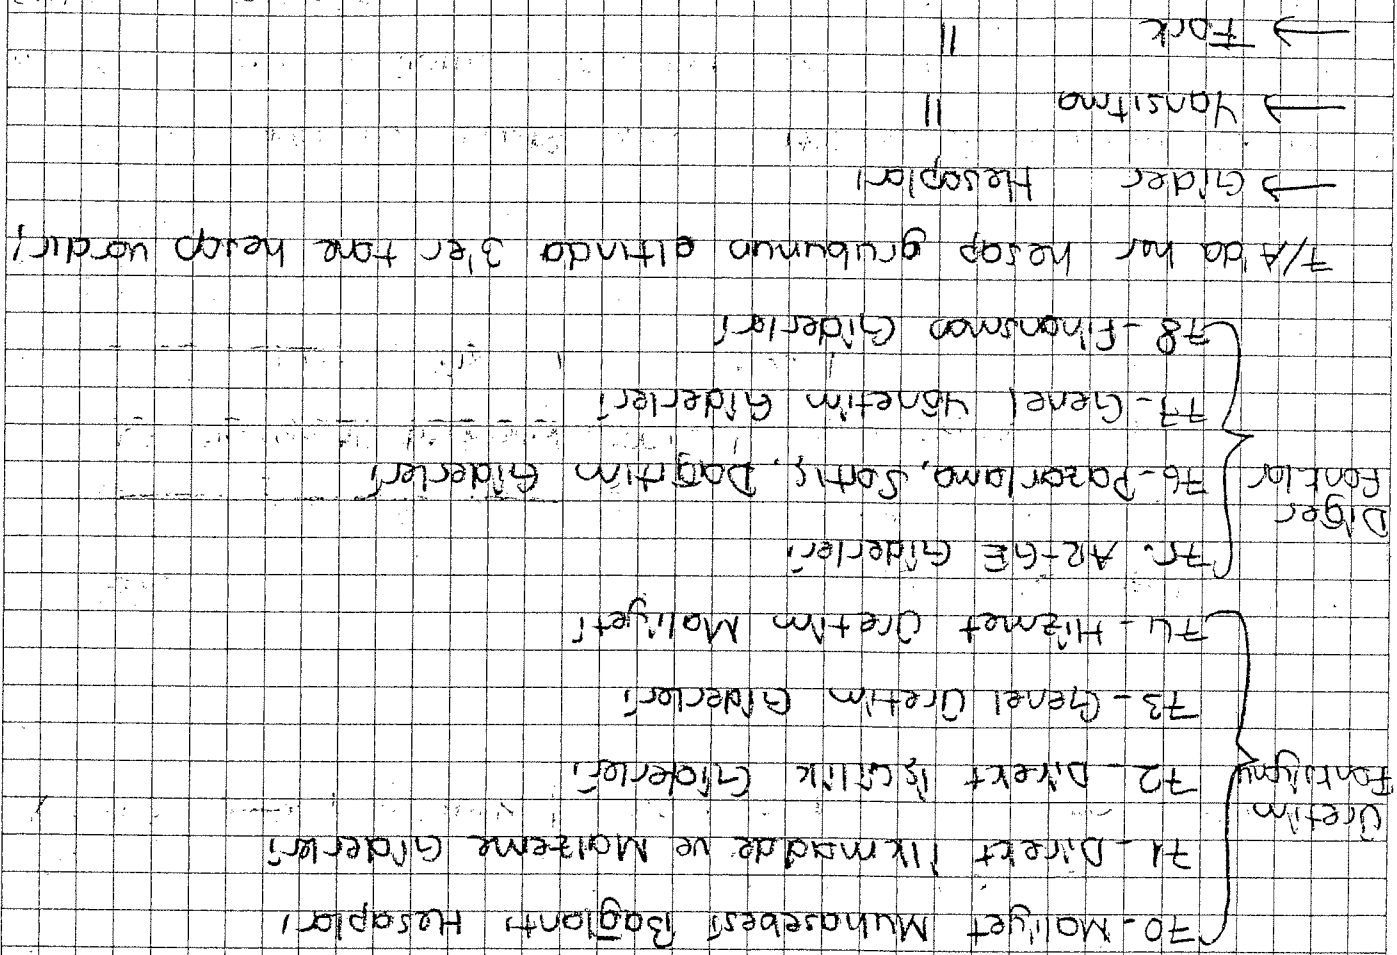 70- Maliyet Muhasebesi Bağlantı Hesapları
71- Direkt İlkmadde ve Malzeme Giderleri
Üretim
72- Direkt İşçilik Giderleri
73- Genel Üretim Giderleri
74- Hizmet Üretim Maliyeti
75- AR-GE Giderleri
Diğer
76- Pazarlama, Satış, Dağıtım Giderleri
77- Genel Yönetim Giderleri
78- Finansman Giderleri
7/A'da her hesap grubunun altında 3'er tane hesap vardır;
→ Gider Hesapları
→ Yansıtma "
→ Fark "